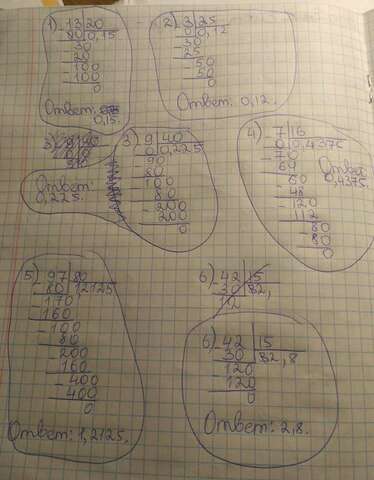 1) 3 | 20
0 | 0,15
30
20
100
100
0
Ответ:
0,15.
2) 3 | 25
0 | 0,12
30
25
50
50
0
Ответ: 0,12.
3) 9 | 40
0 | 0,225
90
80
100
80
200
200
0
Ответ:
0,225.
4) 7 | 16
0 | 0,4375
70
64
60
48
120
112
80
80
0
Ответ
0,4375.
5) 97 | 80
80 | 12125
170
160
100
80
200
160
400
400
0
Ответ: 1,2125.
6) 42 | 15
30
12
6) 42 | 15
30 | 2,8
120
120
0
Ответ: 2,8.